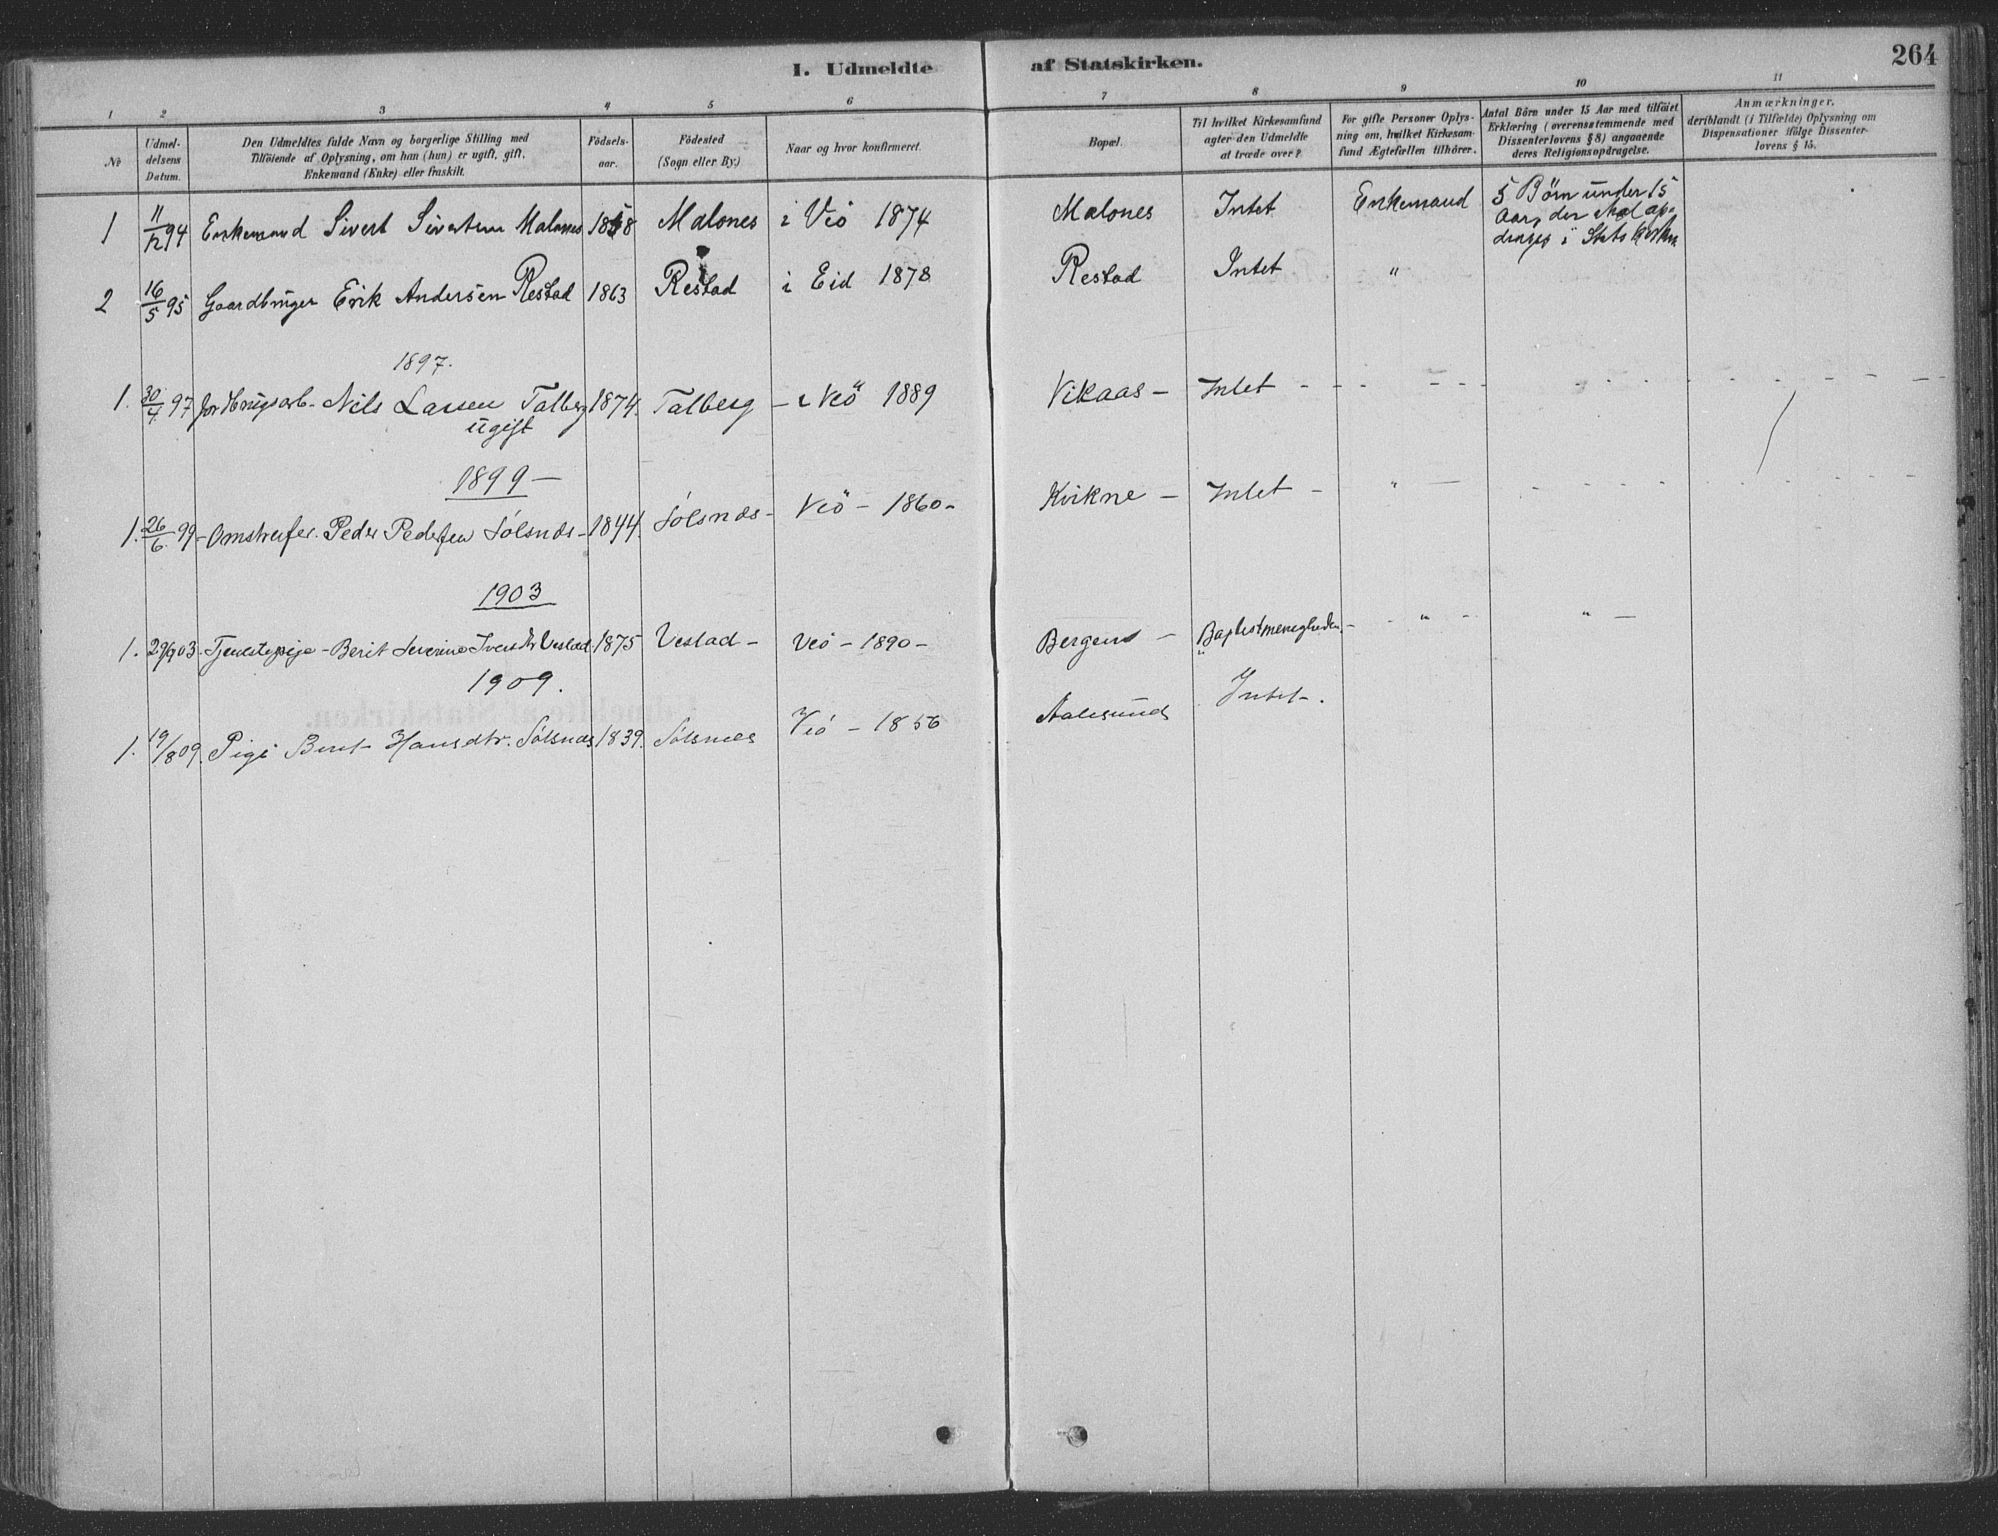 I. Udmeldte af Statskirken. 264
1 2 3 4 5 6 7 8 9 10 11
No
Udmel-
delsens
Datum.
Den Udmeldtes fulde Navn og borgerlige Stilling med
Tilföiende af Oplysning, om han (hun) er ugift, gift,
Enkemand (Enke) eller fraskilt.
Födsels-
aar.
Födested
(Sogn eller By.)
Naar og hvor konfirmeret.
Bopæl.
Til hvilket Kirkesamfund
agter den Udmeldte
at træde over?
For gifte Personer Oplys-
ning om, hvilket Kirkesam-
fund Ægtefællen tilhörer.
Antal Börn under 15 Aar med tilföiet
Erklæring (overensstemmende med
Dissenterlovens § 8) angaaende
deres Religionsopdragelse.
Anmærkninger,
deriblandt (i Tilfælde) Oplysning om
Dispensationer ifölge Dissenter-
lovens § 15.
1 11/12 94 Enkemand Sivert Sivertsen Malones 1858 Malones i Veö 1874 Malones Intet Enkemand 5 Børn under 15
Aar, der skal op-
drages i Statskirken
2 16/5 95 Gaardbruger Erik Andersen Restad 1863 Restad i Eid 1878 Restad Intet "
1897.
1. 30/4 97 Jordbrugsarb. Nils Larsen Talberg 1874. Talberg – i Veö 1889 Vikaas – Intet - - - - -
ugift
1899 –
1. 26/6 99 - Omstreifer. Peder Pedersen Sølsnæs – 1844. Sølsnæs - Veö – 1860 – Kvikne – Intet – " –
1903
1. 29/9 03. Tjenestepige – Berit Severine Iversdtr Vestad 1875 Vestad – Veö – 1890 – Bergen – Baptistmenigheden. – " – " –
1909.
1. 19/8 09. Pige Berit Hansdtr. Sølsnæs 1839. Sølsnæs Veö – 1856 Aalesund Intet –